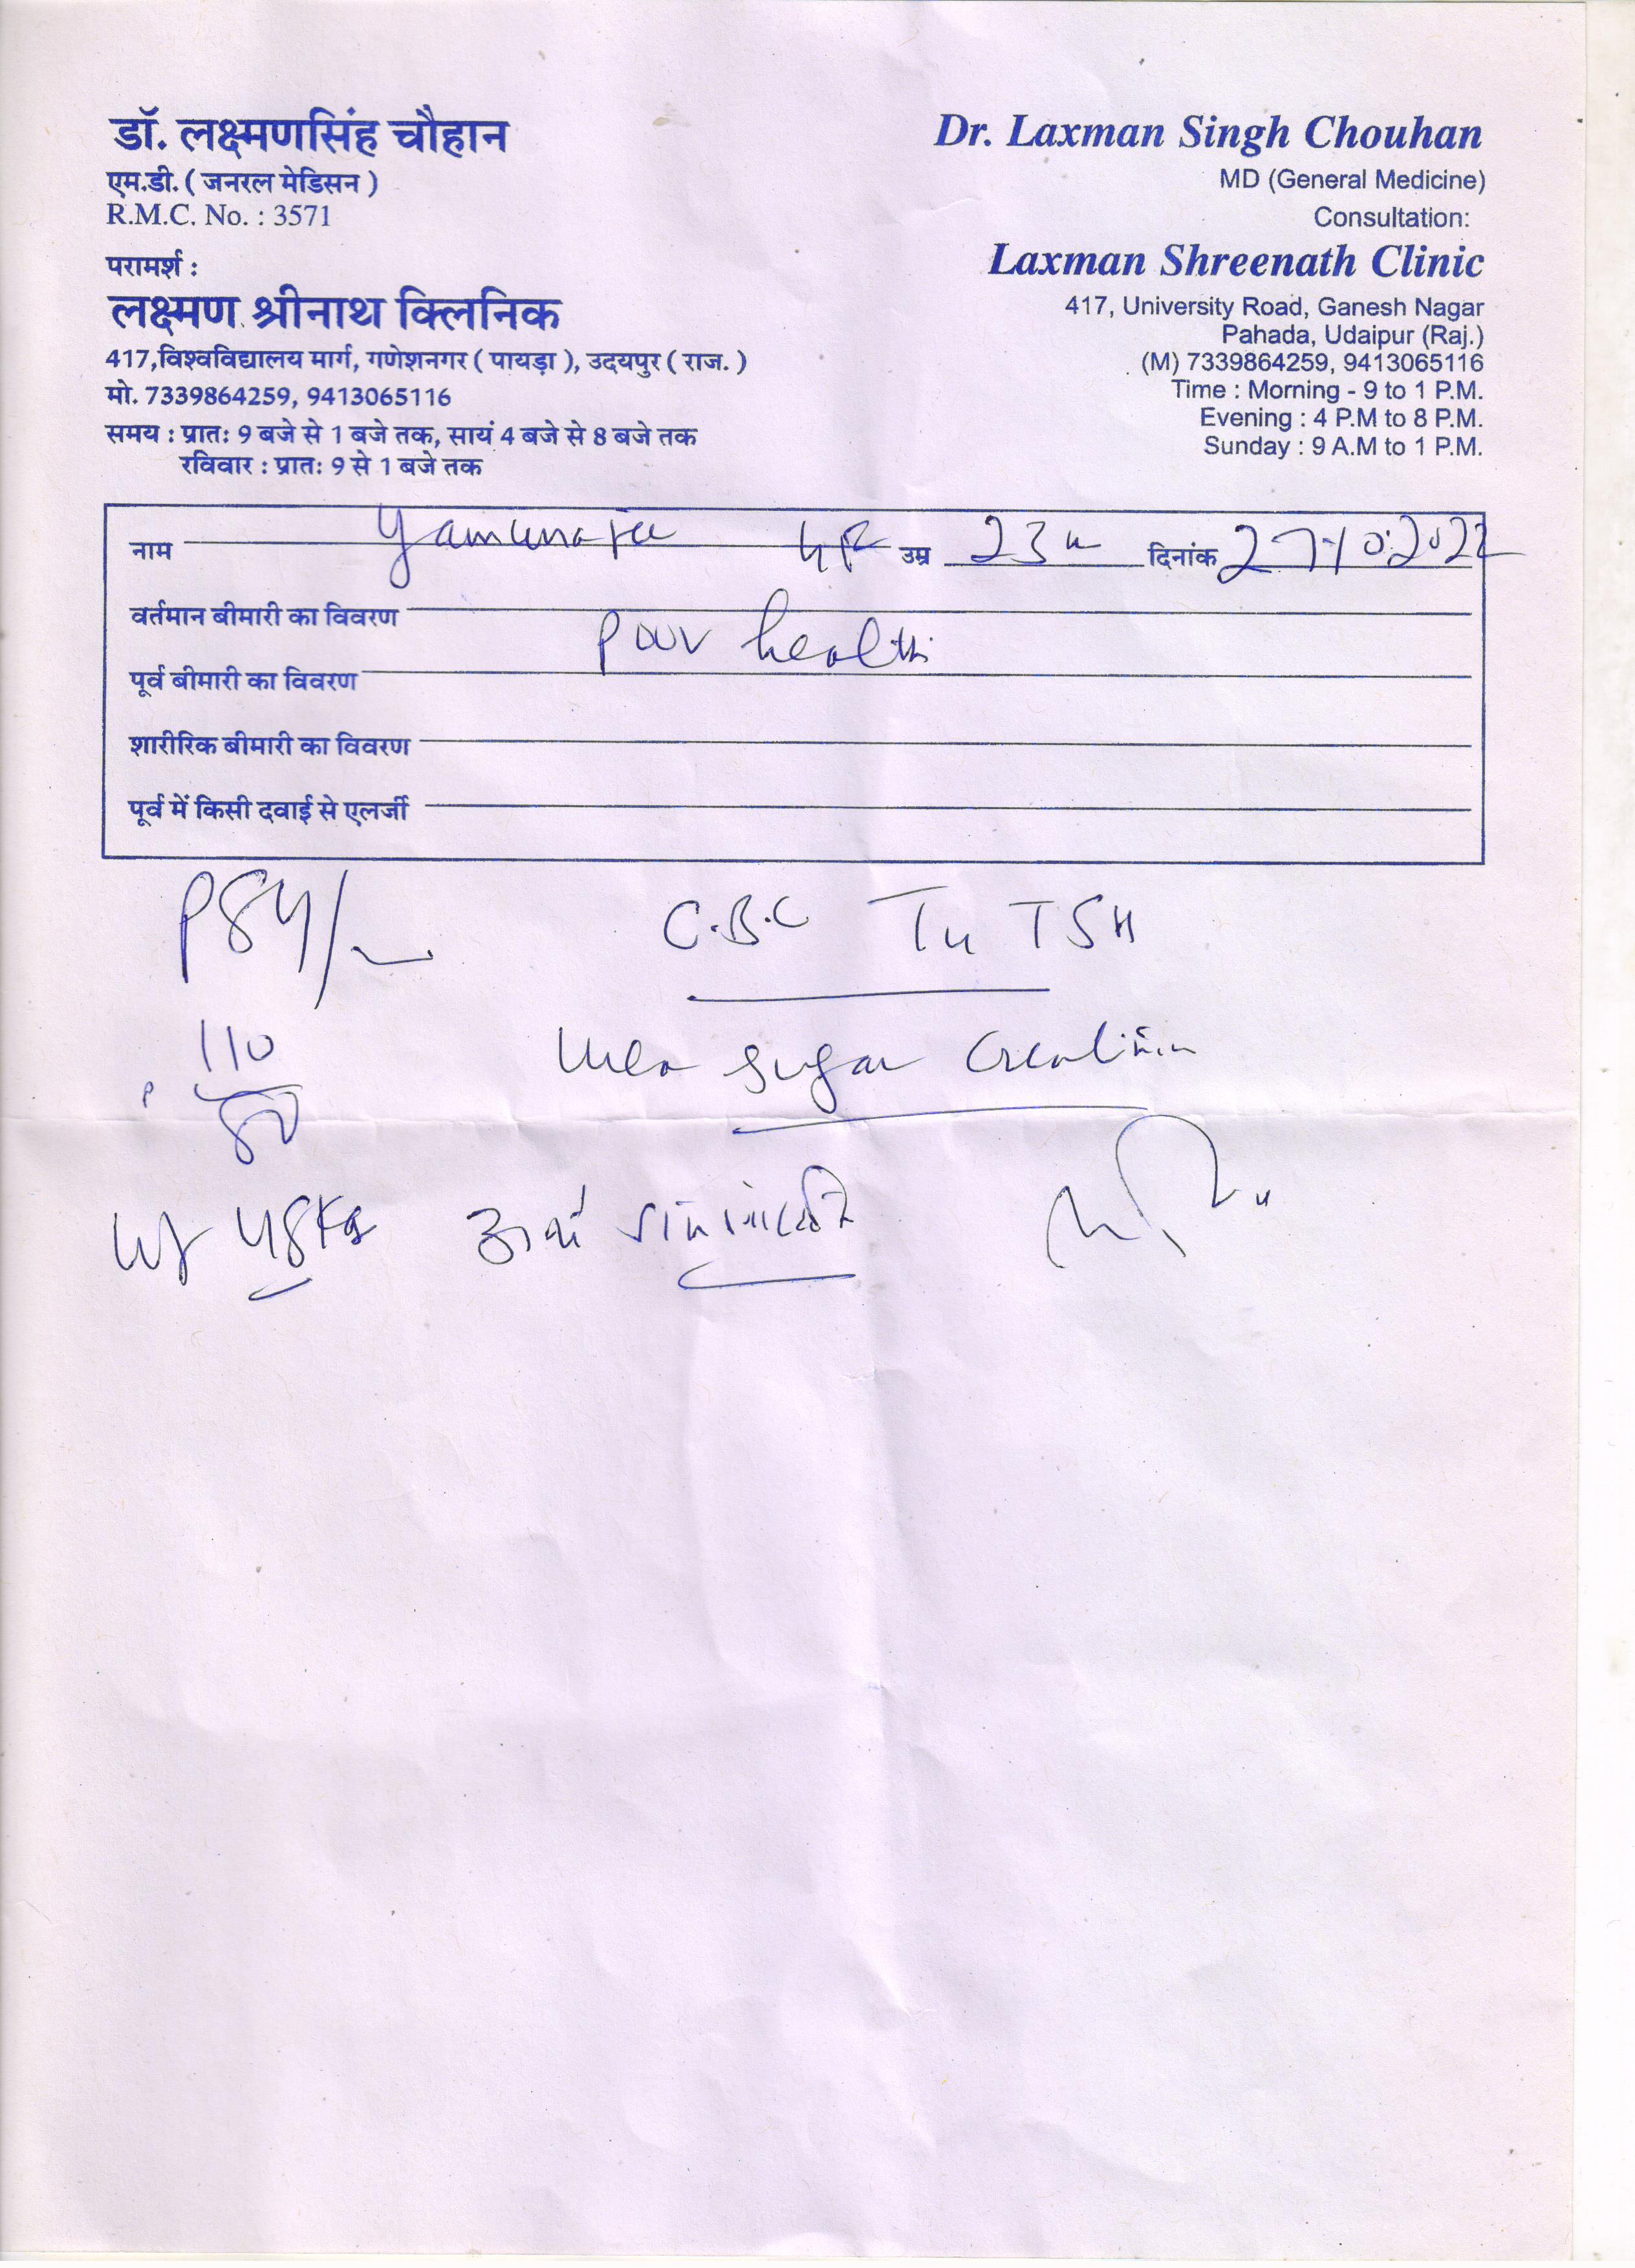 डॉ. लक्ष्मणसिंह चौहान
एम.डी. ( जनरल मेडिसन )
R.M.C. No. : 3571
परामर्श :
लक्ष्मण श्रीनाथ क्लिनिक
417,विश्वविद्यालय मार्ग, गणेशनगर ( पायड़ा ), उदयपुर ( राज. )
मो. 7339864259, 9413065116
समय : प्रातः 9 बजे से 1 बजे तक, सायं 4 बजे से 8 बजे तक
रविवार : प्रातः 9 से 1 बजे तक
Dr. Laxman Singh Chouhan
MD (General Medicine)
Consultation:
Laxman Shreenath Clinic
417, University Road, Ganesh Nagar
Pahada, Udaipur (Raj.)
(M) 7339864259, 9413065116
Time : Morning - 9 to 1 P.M.
Evening : 4 P.M to 8 P.M.
Sunday : 9 A.M to 1 P.M.
नाम उम्र 23 दिनांक 27-10-2022
वर्तमान बीमारी का विवरण
Poor health
पूर्व बीमारी का विवरण
शारीरिक बीमारी का विवरण
पूर्व में किसी दवाई से एलर्जी
P84/ C.B.C TSH
110
80
Urea Sugar Creatinin
48Kg